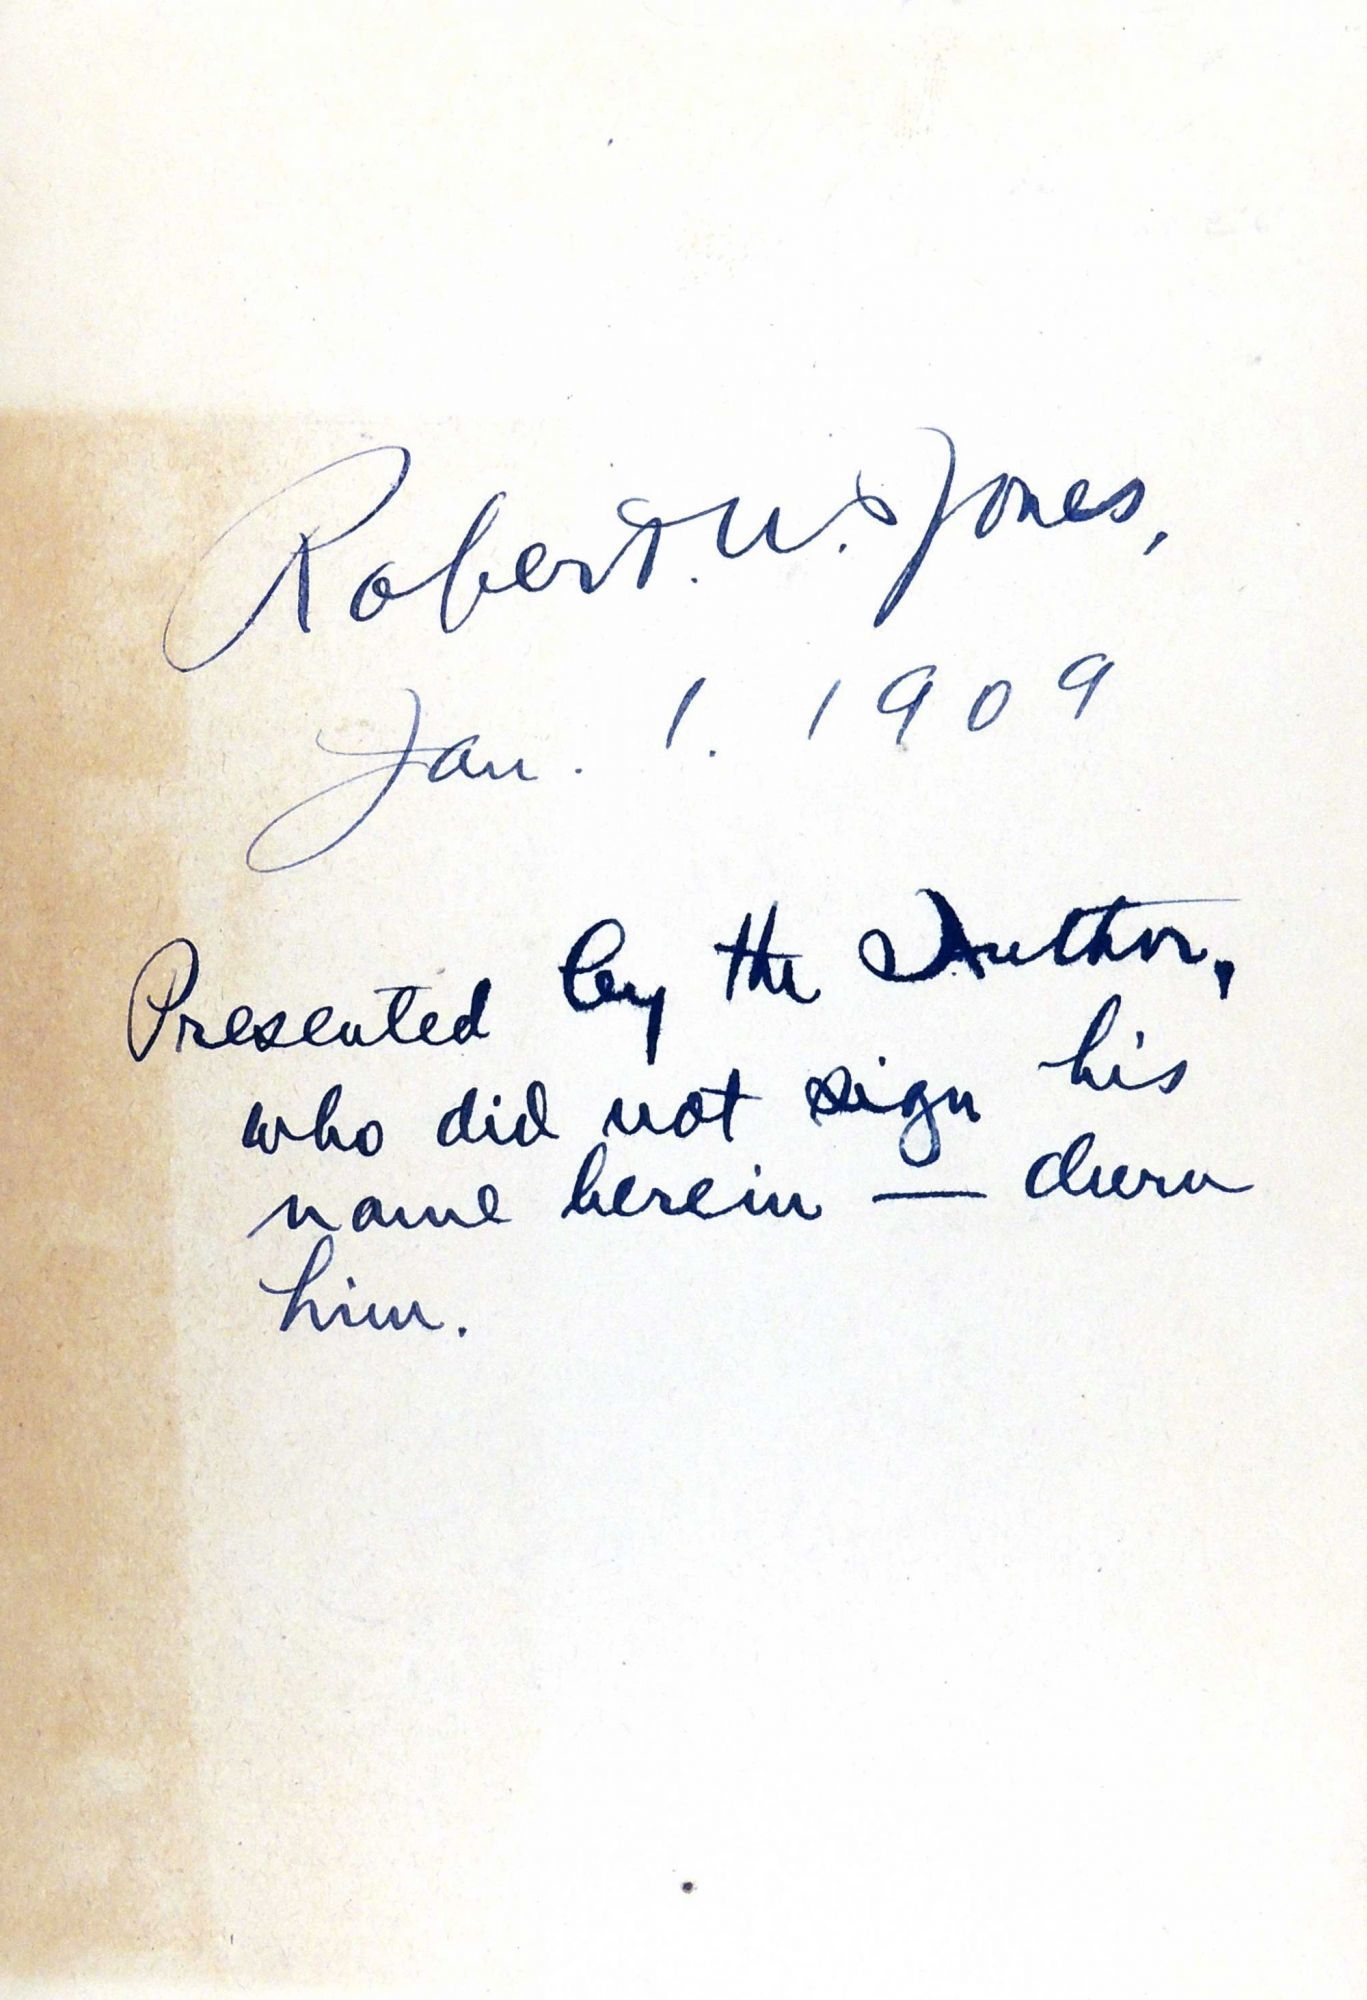 Robert. W. Jones,
Jan. 1. 1909
Presented by the Author,
who did not sign his
name herein — durn
him.